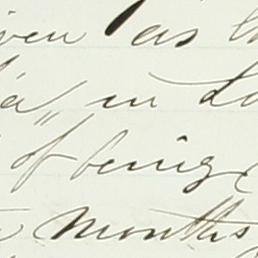 iven as
a" in Lo
of being
months